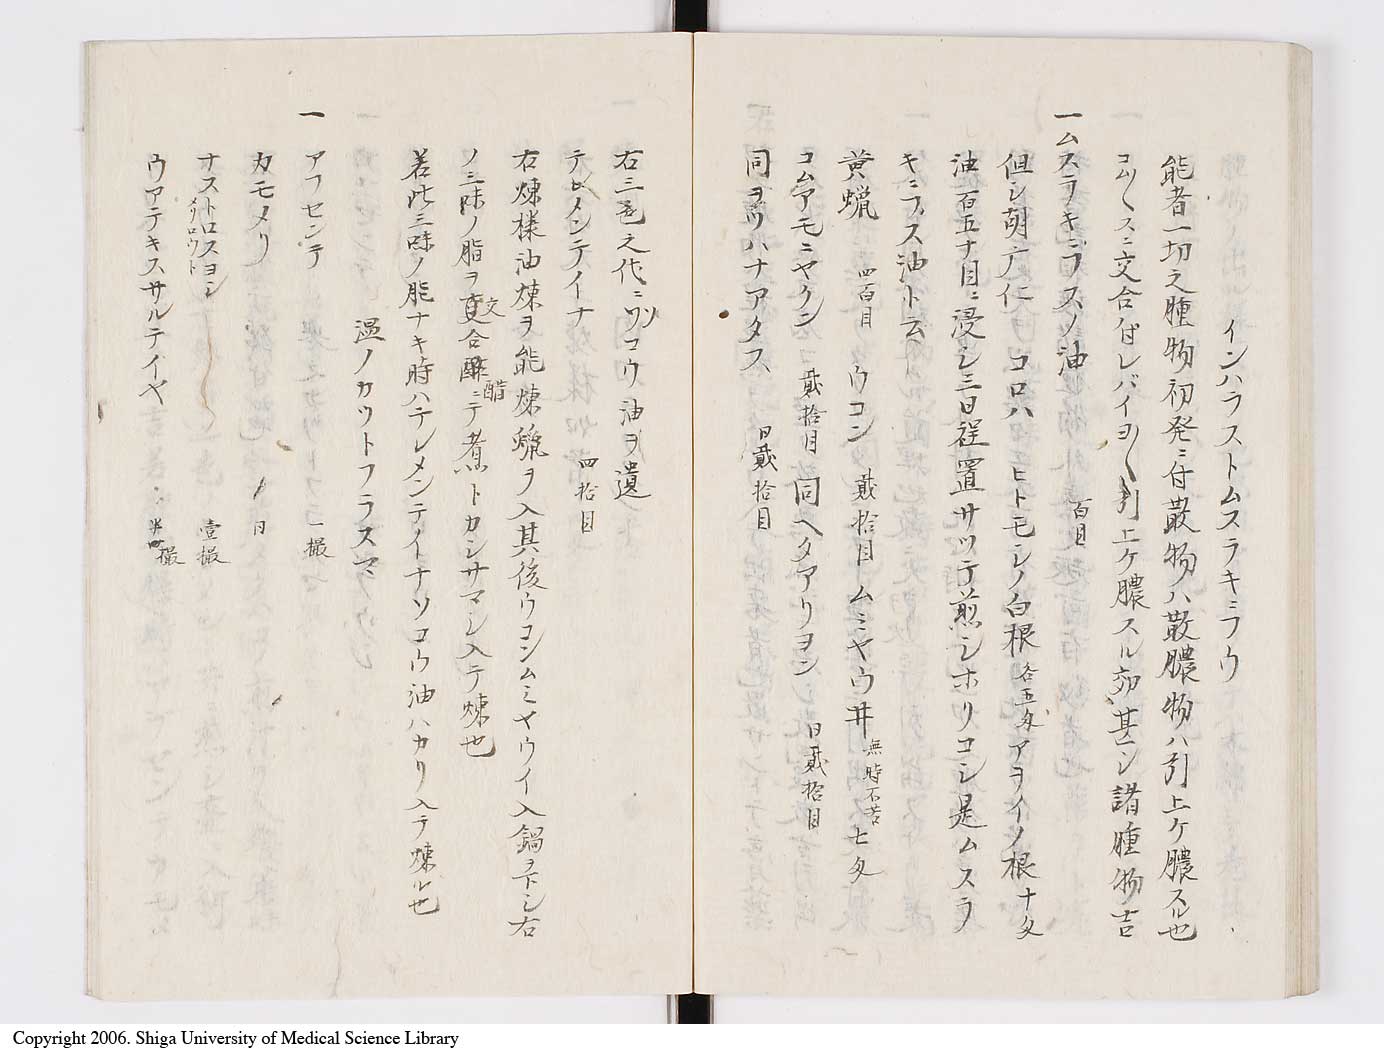 インハラストムスラキニフウ
能者一切之腫物初発ニ付散物ハ散膿物ハ引上ケ膿スル也
ニ交合付レバイヨ〳〵引上ケ膿スル効甚シ諸腫物吉
一ムスラキニフスノ油 百目
但シ胡广仁 コロハ ヒトモシノ白根各五匁アヲイノ根十匁
油百五十目ニ浸シ三日程置サツテ煎シホリコシ是ムスラ
キニフス油ト云
黄蝋 四百目 ウコン 貳拾目 ムミヤウ井無時不苦七匁
コムアモニヤクン 貳拾目 同ヘタアリヨン 日貳拾目
同ヲツハナアタス 日貳拾目
右三色之代ニソコウ油ヲ遺
テレメンテイナ 四拾目
右煉様油煉ヲ能煉蝋ヲ入其後ウコンムミヤウイ入鍋ヲ下シ右
ノ三味ノ脂ヲ交合醋ニテ煮トカシサマシ入テ煉也
若此三味ノ脂ナキ時ハテレメンテイナソコウ油ハカリ入テ煉也
温ノカツトフラスマ
一 アフセンテ 一撮
カモメリ 日
ナストロスヨシ 壹撮
メリロウト
ウアテキスサルテイヤ 半撮
Copyright 2006. Shiga University of Medical Science Library